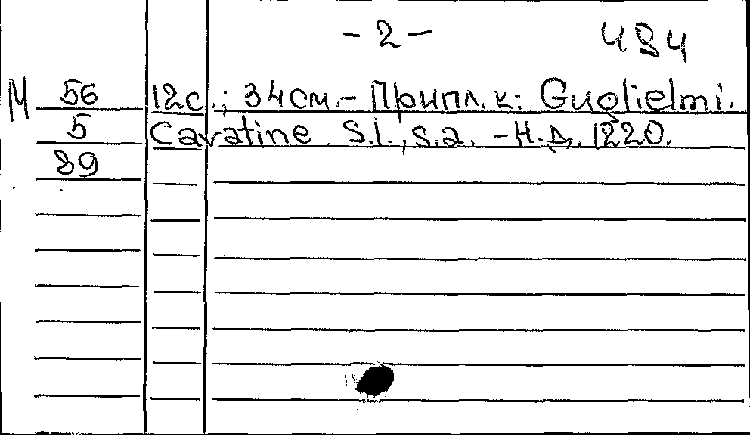 - 2 -
484
М 56 12с.; 34см.- Припл. к: Guglielmi.
5 Cavatine. S.l., s.a. - Н.д. 1220.
89